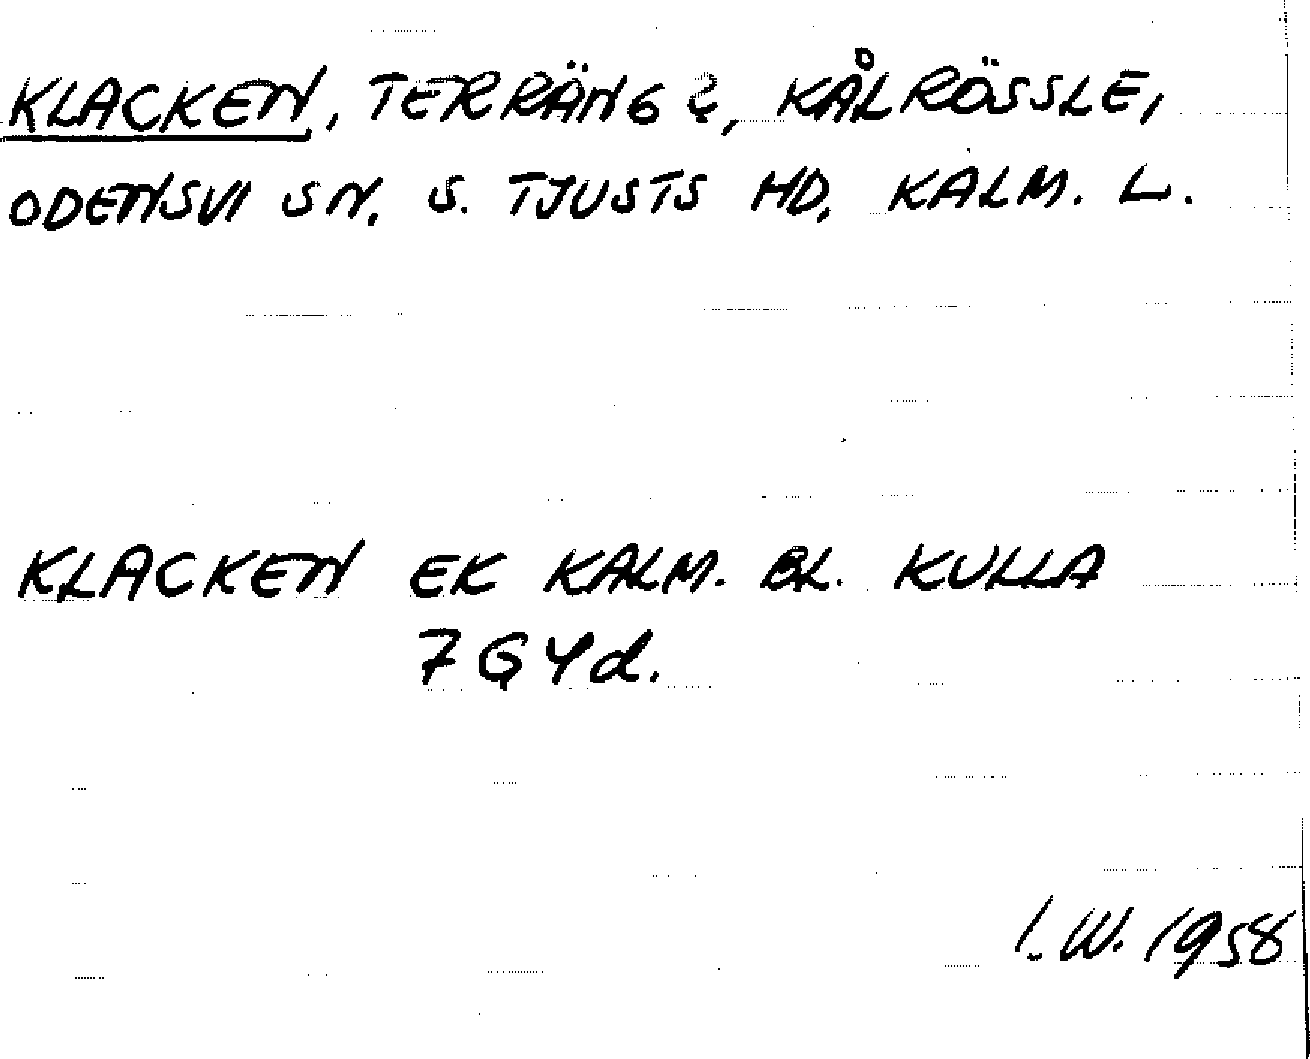 KLACKEN, TERRÄNG ?, KÅLRÖSSLE,
ODENSVI SN. S. TJUSTS HD, KALM. L.
KLACKEN EK KALM. BL. KULLA
7G4d.
I.W. 1958